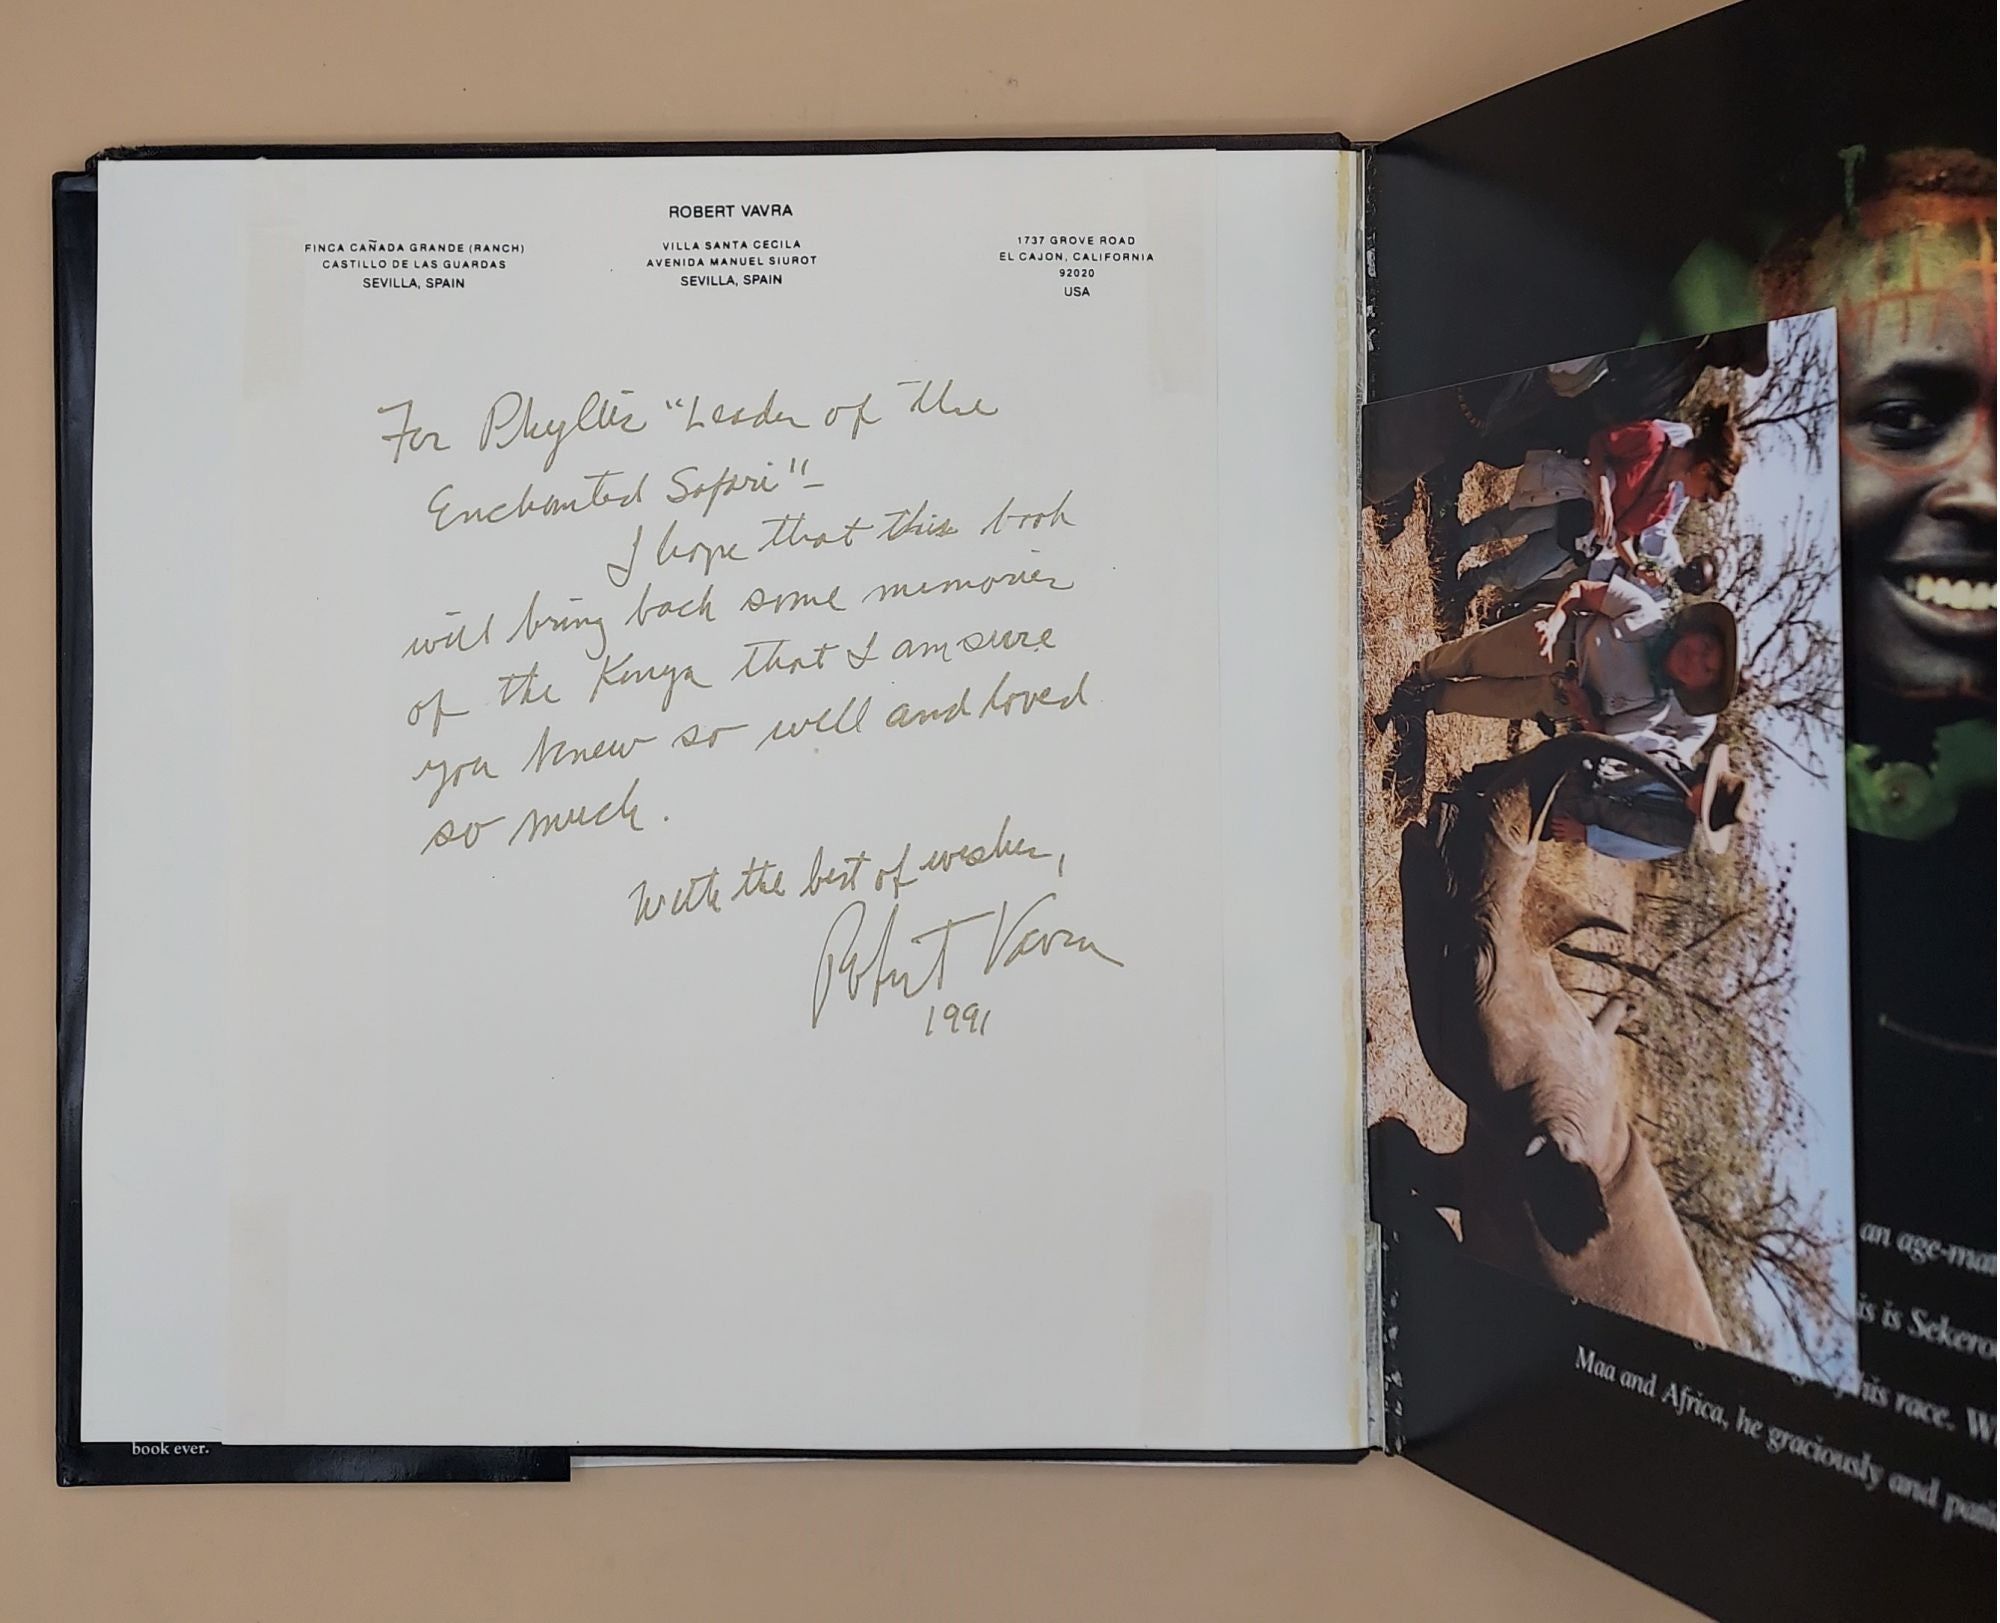 ROBERT VAVRA
FINCA CAÑADA GRANDE (RANCH)
CASTILLO DE LAS GUARDAS
SEVILLA, SPAIN
VILLA SANTA CECILA
AVENIDA MANUEL SIUROT
SEVILLA, SPAIN
1737 GROVE ROAD
EL CAJON, CALIFORNIA
92020
USA
For Phyllis "Leader of the
Enchanted Safari" –
I hope that this book
will bring back some memories
of the Kenya that I am sure
you knew so well and loved
so much.
With the best of wishes,
Robert Vavra
1991
book ever.
an age-mat
is is Sekero
his race. W
Maa and Africa, he graciously and pati